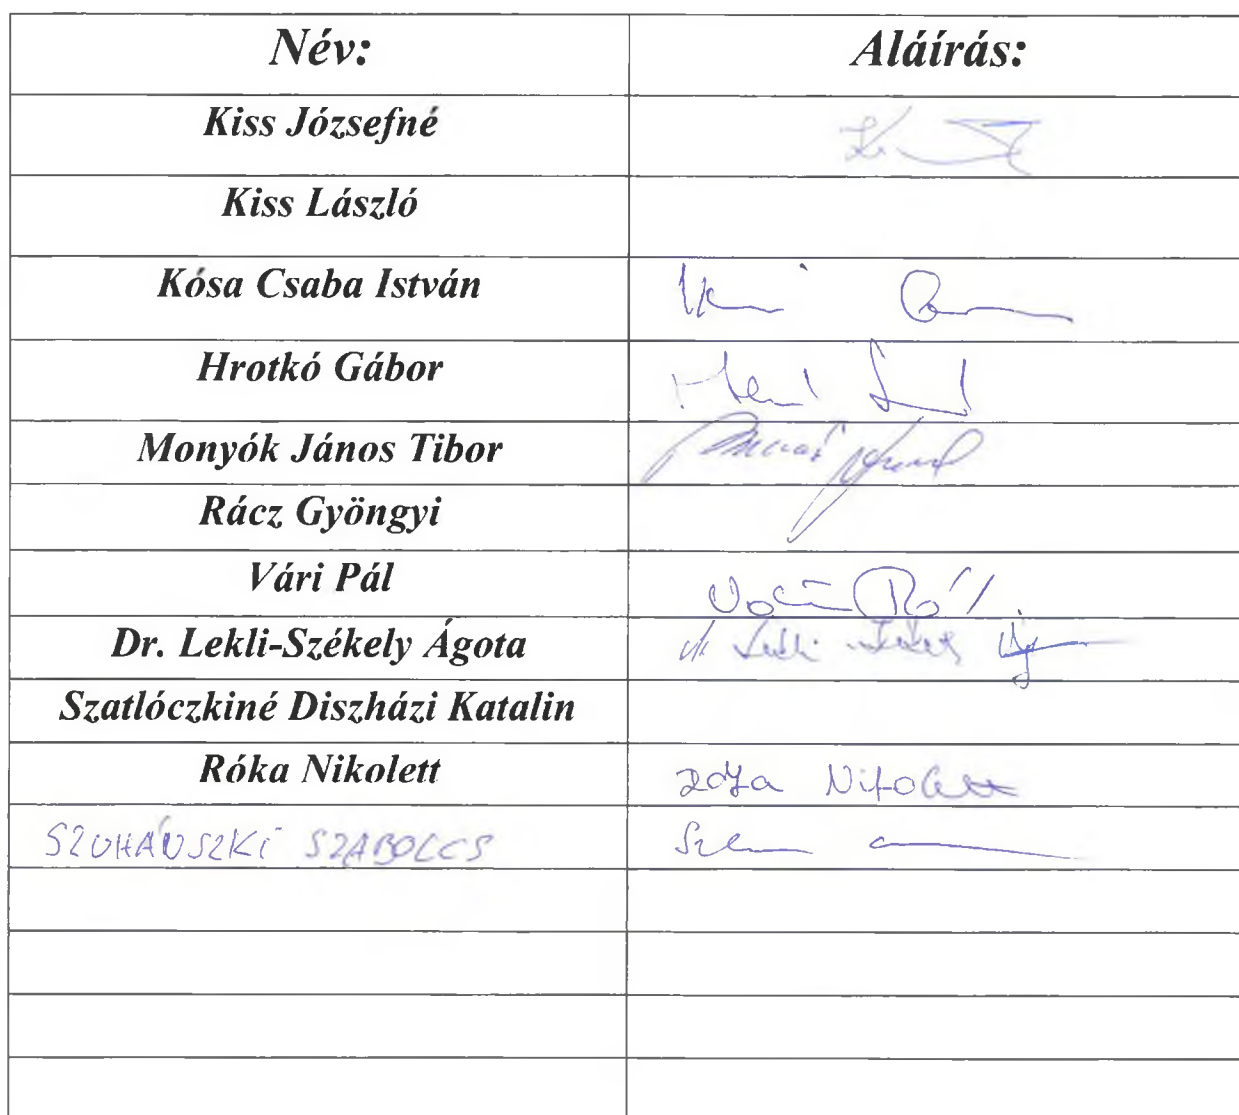 Név: Aláírás:
Kiss Józsefné
Kiss László
Kósa Csaba István
Hrotkó Gábor
Monyók János Tibor
Rácz Gyöngyi
Vári Pál Vári Pál
Dr. Lekli-Székely Ágota
Szatlóczkiné Diszházi Katalin
Róka Nikolett Róka Nikolett
SZUHÁNSZKI SZABOLCS